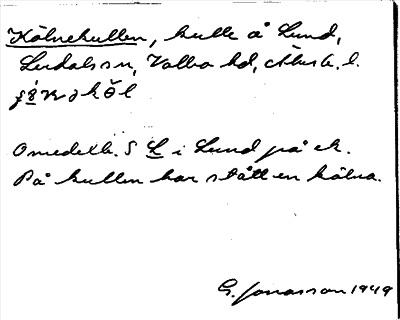 Kölnekullen, kulle å Lund,
Lerdalssn, Valbo hd, Älvsb. l.
Omedelb. S L i Lund på ek.
På kullen har stått en kölna.
G. Jonasson 1949